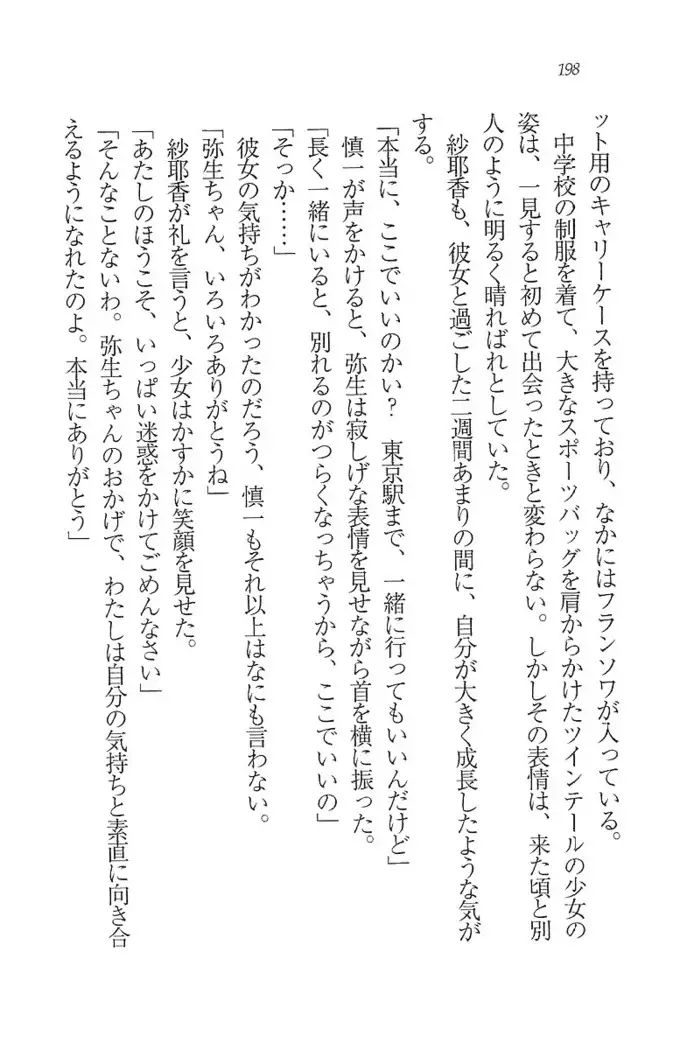 198
ット用のキャリーケースを持っており、なかにはフランソワが入っている。
中学校の制服を着て、大きなスポーツバッグを肩からかけたツインテールの少女の
姿は、一見すると初めて出会ったときと変わらない。しかしその表情は、来た頃と別
人のように明るく晴ればれとしていた。
紗耶香も、彼女と過ごした二週間あまりの間に、自分が大きく成長したような気が
する。
「本当に、ここでいいのかい？　東京駅まで、一緒に行ってもいいんだけど」
慎一が声をかけると、弥生は寂しげな表情を見せながら首を横に振った。
「長く一緒にいると、別れるのがつらくなっちゃうから、ここでいいの」
「そっか……」
彼女の気持ちがわかったのだろう、慎一もそれ以上はなにも言わない。
「弥生ちゃん、いろいろありがとうね」
紗耶香が礼を言うと、少女はかすかに笑顔を見せた。
「あたしのほうこそ、いっぱい迷惑をかけてごめんなさい」
「そんなことないわ。弥生ちゃんのおかげで、わたしは自分の気持ちと素直に向き合
えるようになれたのよ。本当にありがとう」